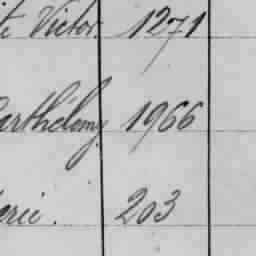 Victor. 1271
Barthélemy 1966
203